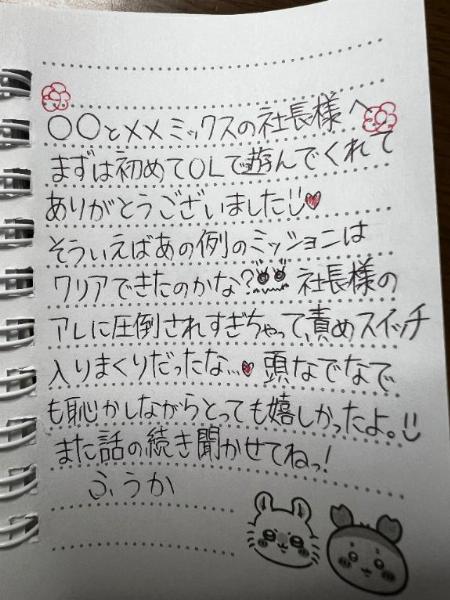 〇〇と××ミックスの社長様へ
まずは初めてOLで遊んでくれて
ありがとうございました
そういえばあの例のミッションは
クリアできたのかな? 社長様の
アレに圧倒されすぎちゃって、責めスイッチ
入りまくりだったな… 頭なでなで
も恥かしながらとっても嬉しかったよ。
また話の続き聞かせてねっ!
ふうか